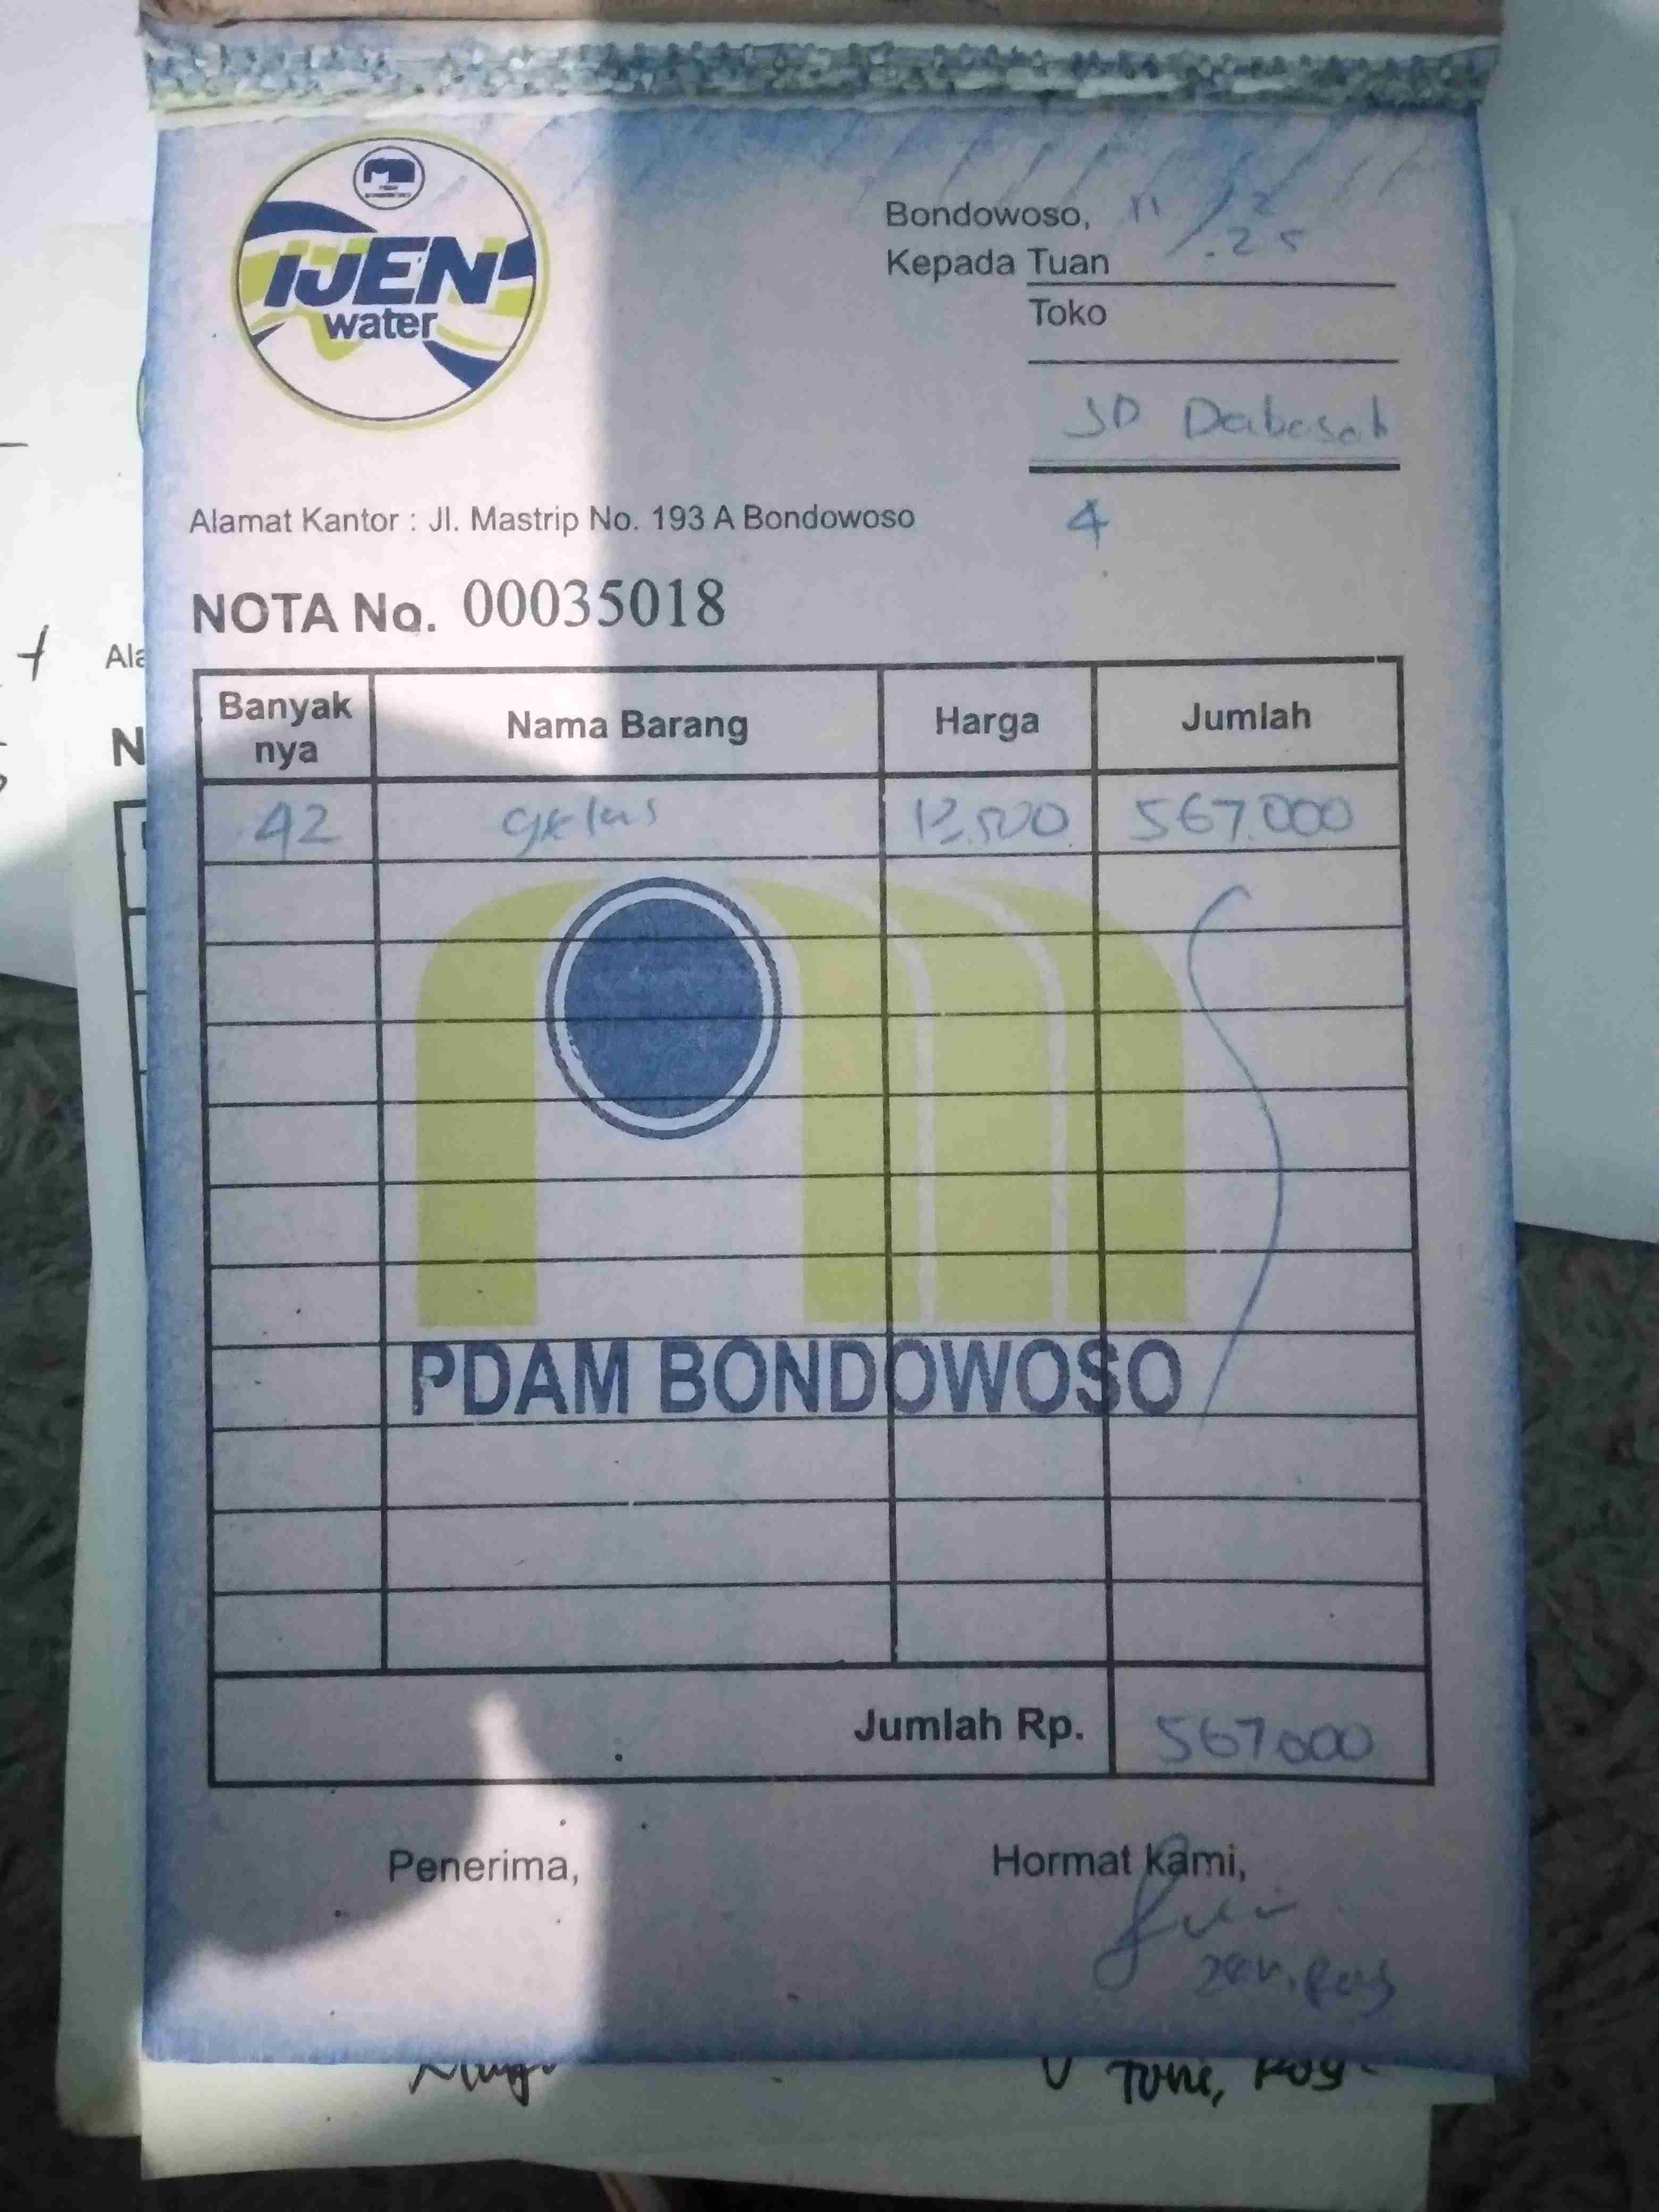 IJEN
water
Bondowoso, 11/2
.25
Kepada Tuan
Toko
SD Dabasah
4
Alamat Kantor : Jl. Mastrip No. 193 A Bondowoso
NOTA No. 00035018
Banyak nya Nama Barang Harga Jumlah
42 gelas 13.500 567.000
PDAM BONDOWOSO
Jumlah Rp. 567.000
Penerima, Hormat Kami,
Ala
N